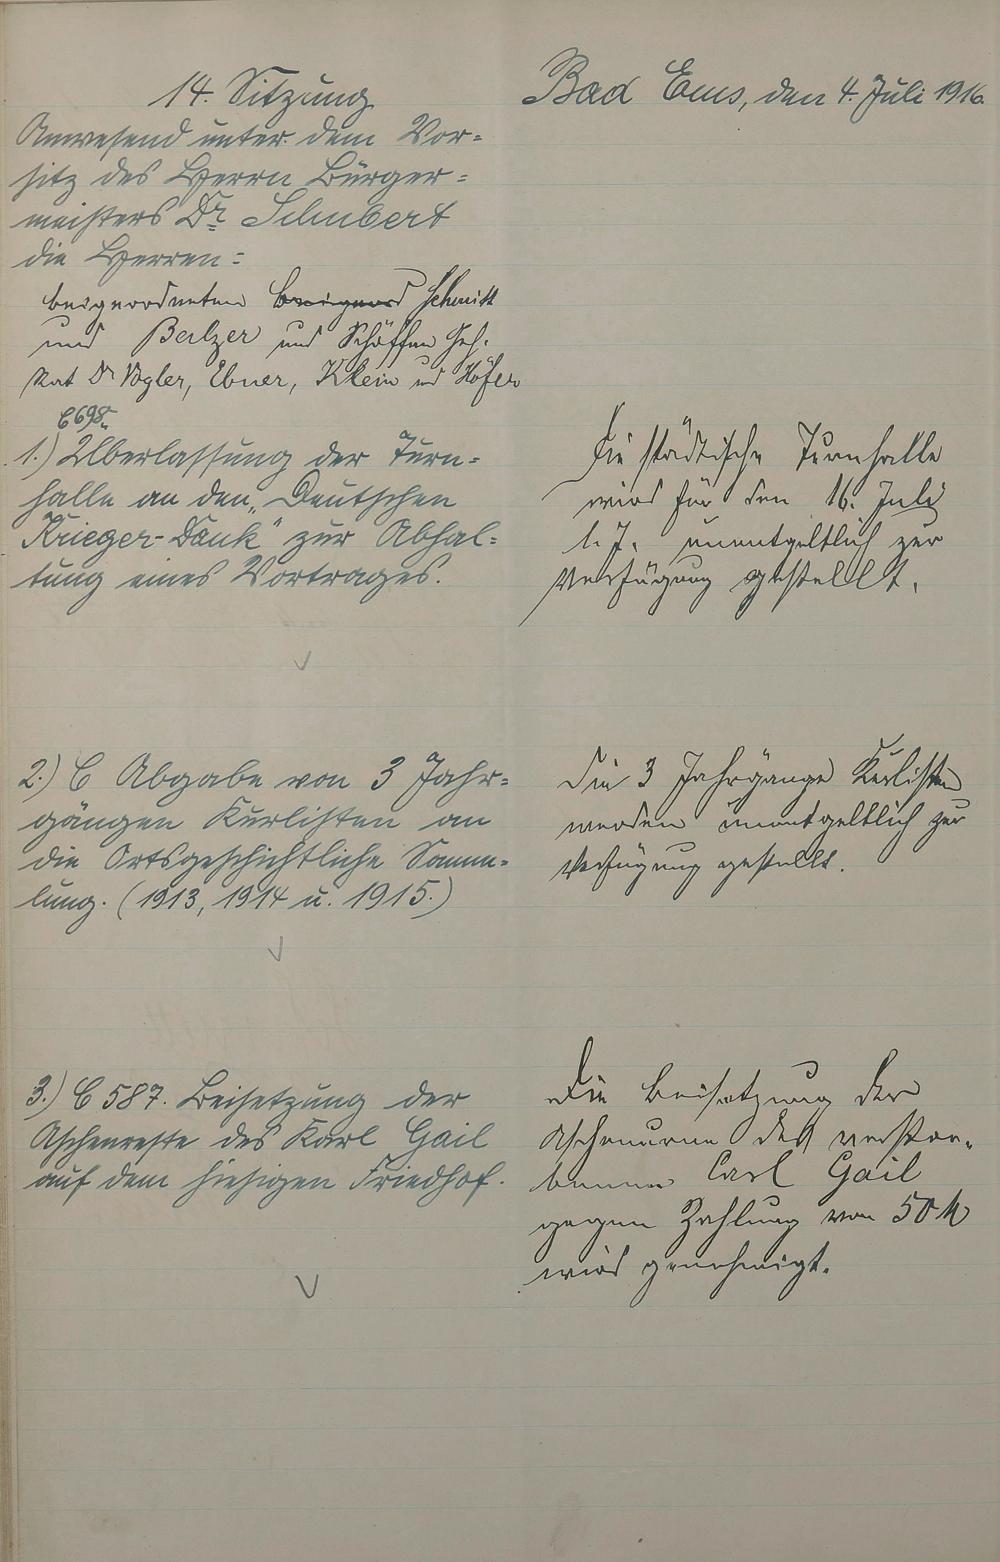 14. Sitzung
Bad Ems, den 4. Juli 1916.
Anwesend unter dem Vor=
sitz des Herrn Bürger=
meisters Dr. Schubert
die Herren:
beigeordneten beigeord Schmitt
und Balzer und Schöffen Geh.
Rat Dr Vogler, Ebner, Klein und Höfer
C 698.
1.) Überlassung der Turn=
halle an den „Deutschen
Krieger-Dank" zur Abhal=
tung eines Vortrages.
Die städtische Turnhalle
wird für den 16. July
l. J. unentgeltlich zur
Verfügung gestellt.
2.) C Abgabe von 3 Jahr=
gängen Kurlisten an
die Ortsgeschichtliche Samm=
lung. (1913, 1914 u. 1915.)
Die 3 Jahrgänge Kurlisten
werden unentgeltlich zur
Verfügung gestellt.
3.) C 587. Beisetzung der
Aschenreste des Karl Gail
auf dem hiesigen Friedhof.
Die Beisetzung der
Aschenurne des verstor=
benen Carl Gail
gegen Zahlung von 50 M
wird genehmigt.